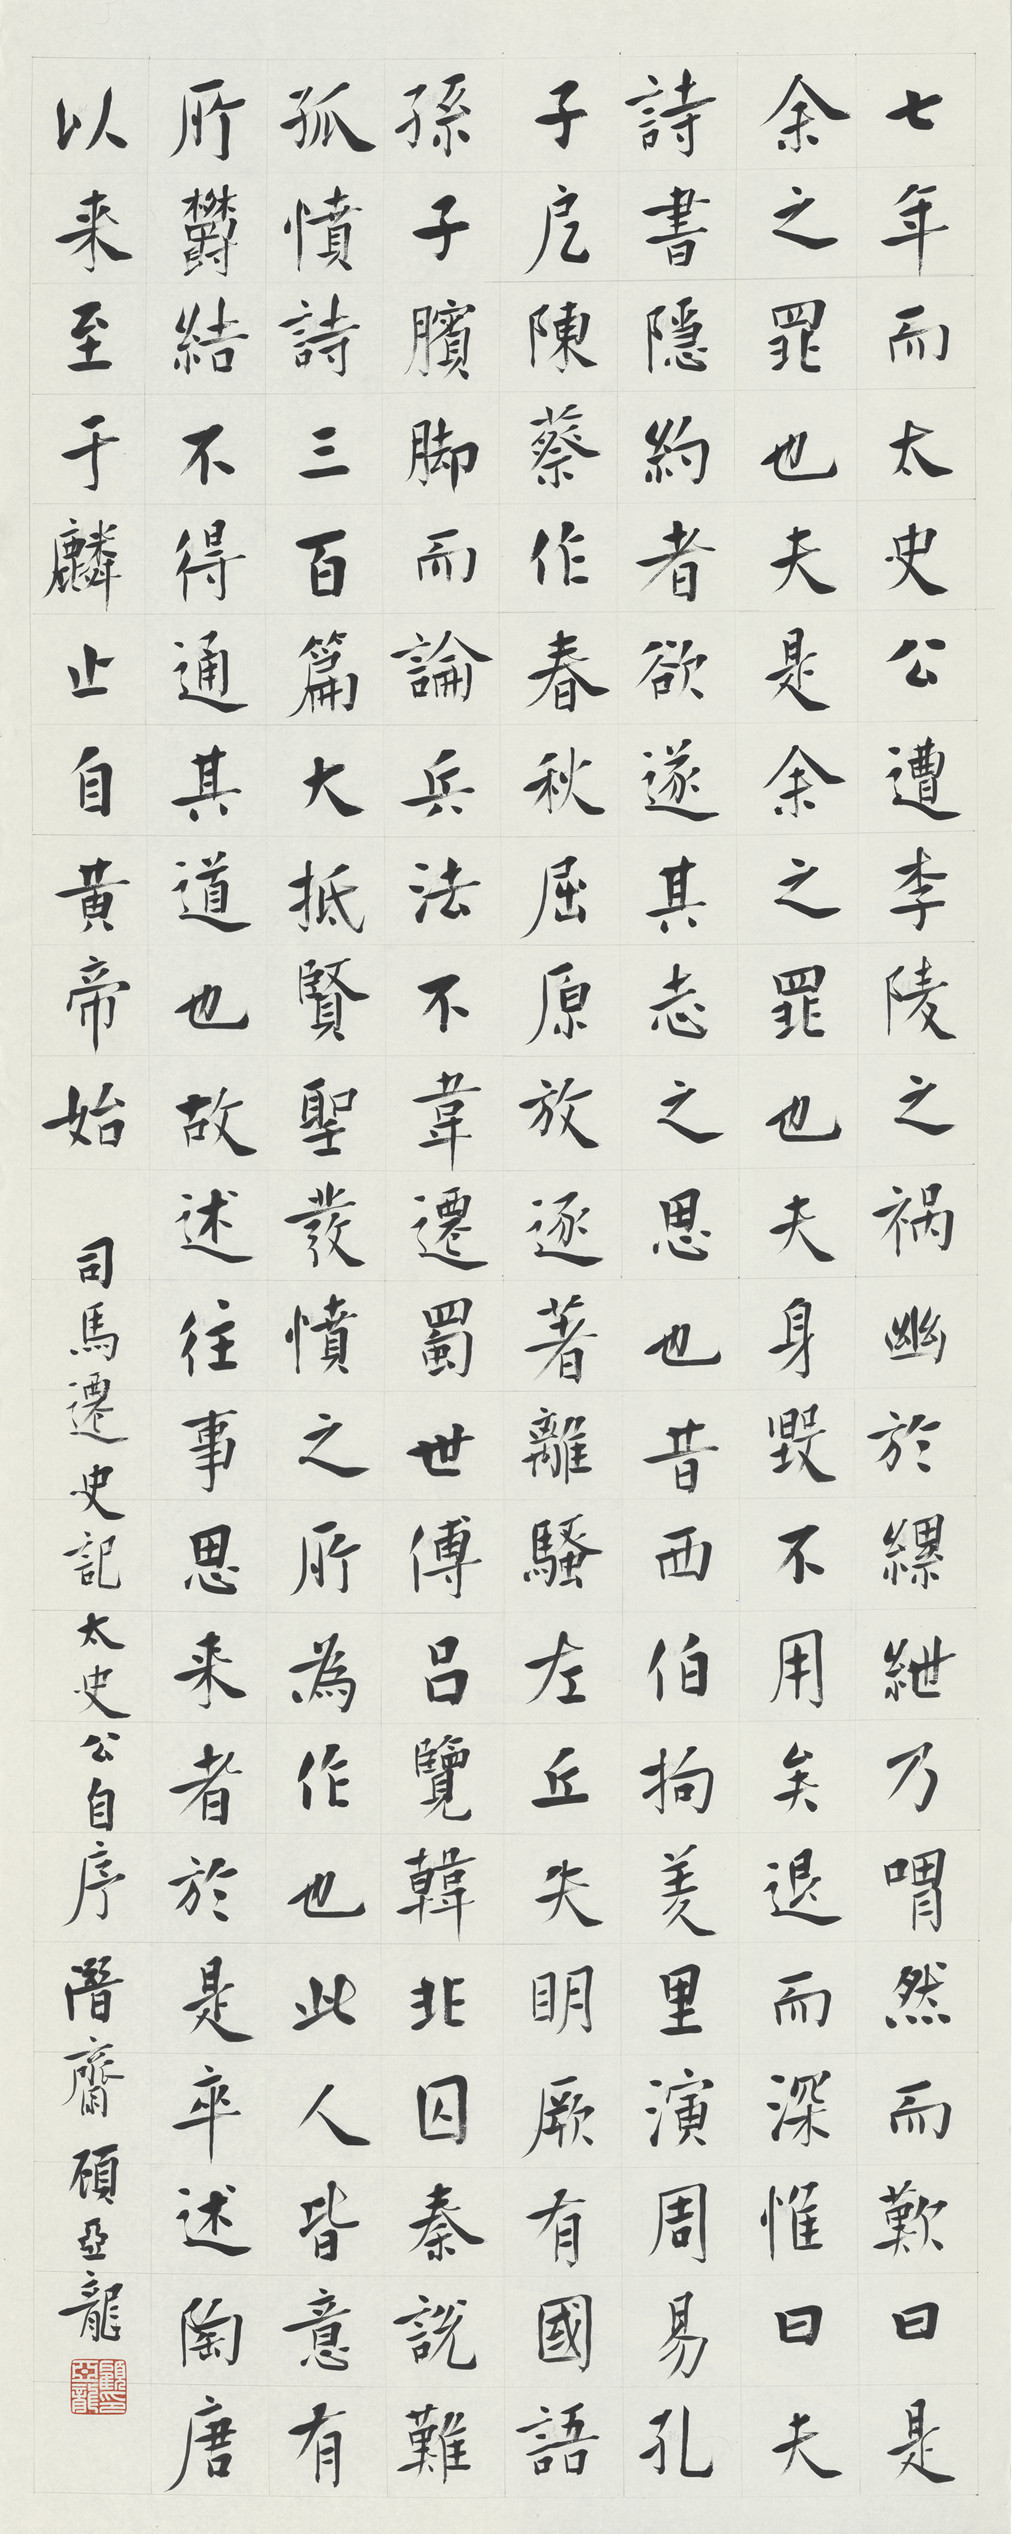 七年而太史公遭李陵之祸幽於縲紲乃喟然而歎曰是
余之罪也夫是余之罪也夫身毀不用矣退而深惟曰夫
詩書隱約者欲遂其志之思也昔西伯拘羑里演周易孔
子戹陳蔡作春秋屈原放逐著離騷左丘失明厥有國語
孫子臏脚而論兵法不韋遷蜀世傳呂覽韓非囚秦說難
孤憤詩三百篇大抵賢聖發憤之所為作也此人皆意有
所鬱結不得通其道也故述往事思来者於是卒述陶唐
以来至于麟止自黄帝始 司馬遷史記太史公自序 潛齋 顧亞龍
顧亞龍印